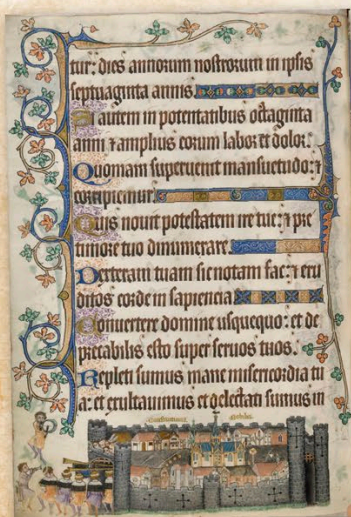 tur: dies annorum nostrorum in ipsis
septuaginta annis.
Si autem in potentatibus octaginta
anni ⁊ amplius eorum labor et dolor.
Quoniam superuenit mansuetudo: ⁊
corripiemur.
Quis nouit potestatem ire tue: ⁊ pre
timore tuo dinumerare.
Dexteram tuam sic notam fac: ⁊ eru
ditos corde in sapiencia.
Conuertere domine usquequo: et de
precabilis esto super seruos tuos.
Repleti sumus mane misericordia tu
a: et exultauimus et delectati sumus in